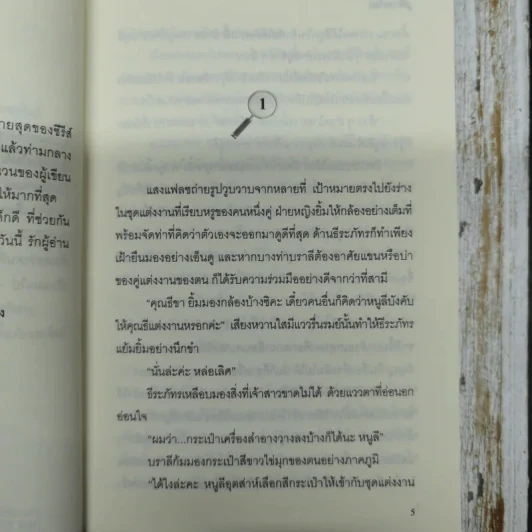 ายสุดของซีรีส์
แล้วท่ามกลาง
วนของผู้เขียน
ให้มากที่สุด
ก็ดี ที่ช่วยกัน
วันนี้ รักผู้อ่าน
1
แสงแฟลชถ่ายรูปวูบวาบจากหลายที่ เป้าหมายตรงไปยังร่าง
ในชุดแต่งงานที่เรียบหรูของคนหนึ่งคู่ ฝ่ายหญิงยิ้มให้กล้องอย่างเต็มที่
พร้อมจัดท่าที่คิดว่าตัวเองจะออกมาดูดีที่สุด ด้านธีระภัทรก็ทำเพียง
เฝ้ายืนมองอย่างเอ็นดู และหากบางท่าบราลีต้องอาศัยแขนหรือบ่า
ของคู่แต่งงานของตน ก็ได้รับความร่วมมืออย่างดีจากว่าที่สามี
“คุณธีขา ยิ้มมองกล้องบ้างซิคะ เดี๋ยวคนอื่นก็คิดว่าหนูลีบังคับ
ให้คุณธีแต่งงานหรอกค่ะ” เสียงหวานใสมีแววรื่นรมย์นั้นทำให้ธีระภัทร
แย้มยิ้มอย่างนึกขำ
“นั่นล่ะค่ะ หล่อเลิศ”
ธีระภัทรเหลือบมองสิ่งที่เจ้าสาวขาดไม่ได้ ด้วยแววตาที่อ่อนอก
อ่อนใจ
“ผมว่า...กระเป๋าเครื่องสำอางวางลงบ้างก็ได้นะ หนูลี”
บราลีก้มมองกระเป๋าสีขาวไข่มุกของตนอย่างภาคภูมิ
“ได้ไงล่ะคะ หนูลีอุตสาห์เลือกสีกระเป๋าให้เข้ากับชุดแต่งงาน
5